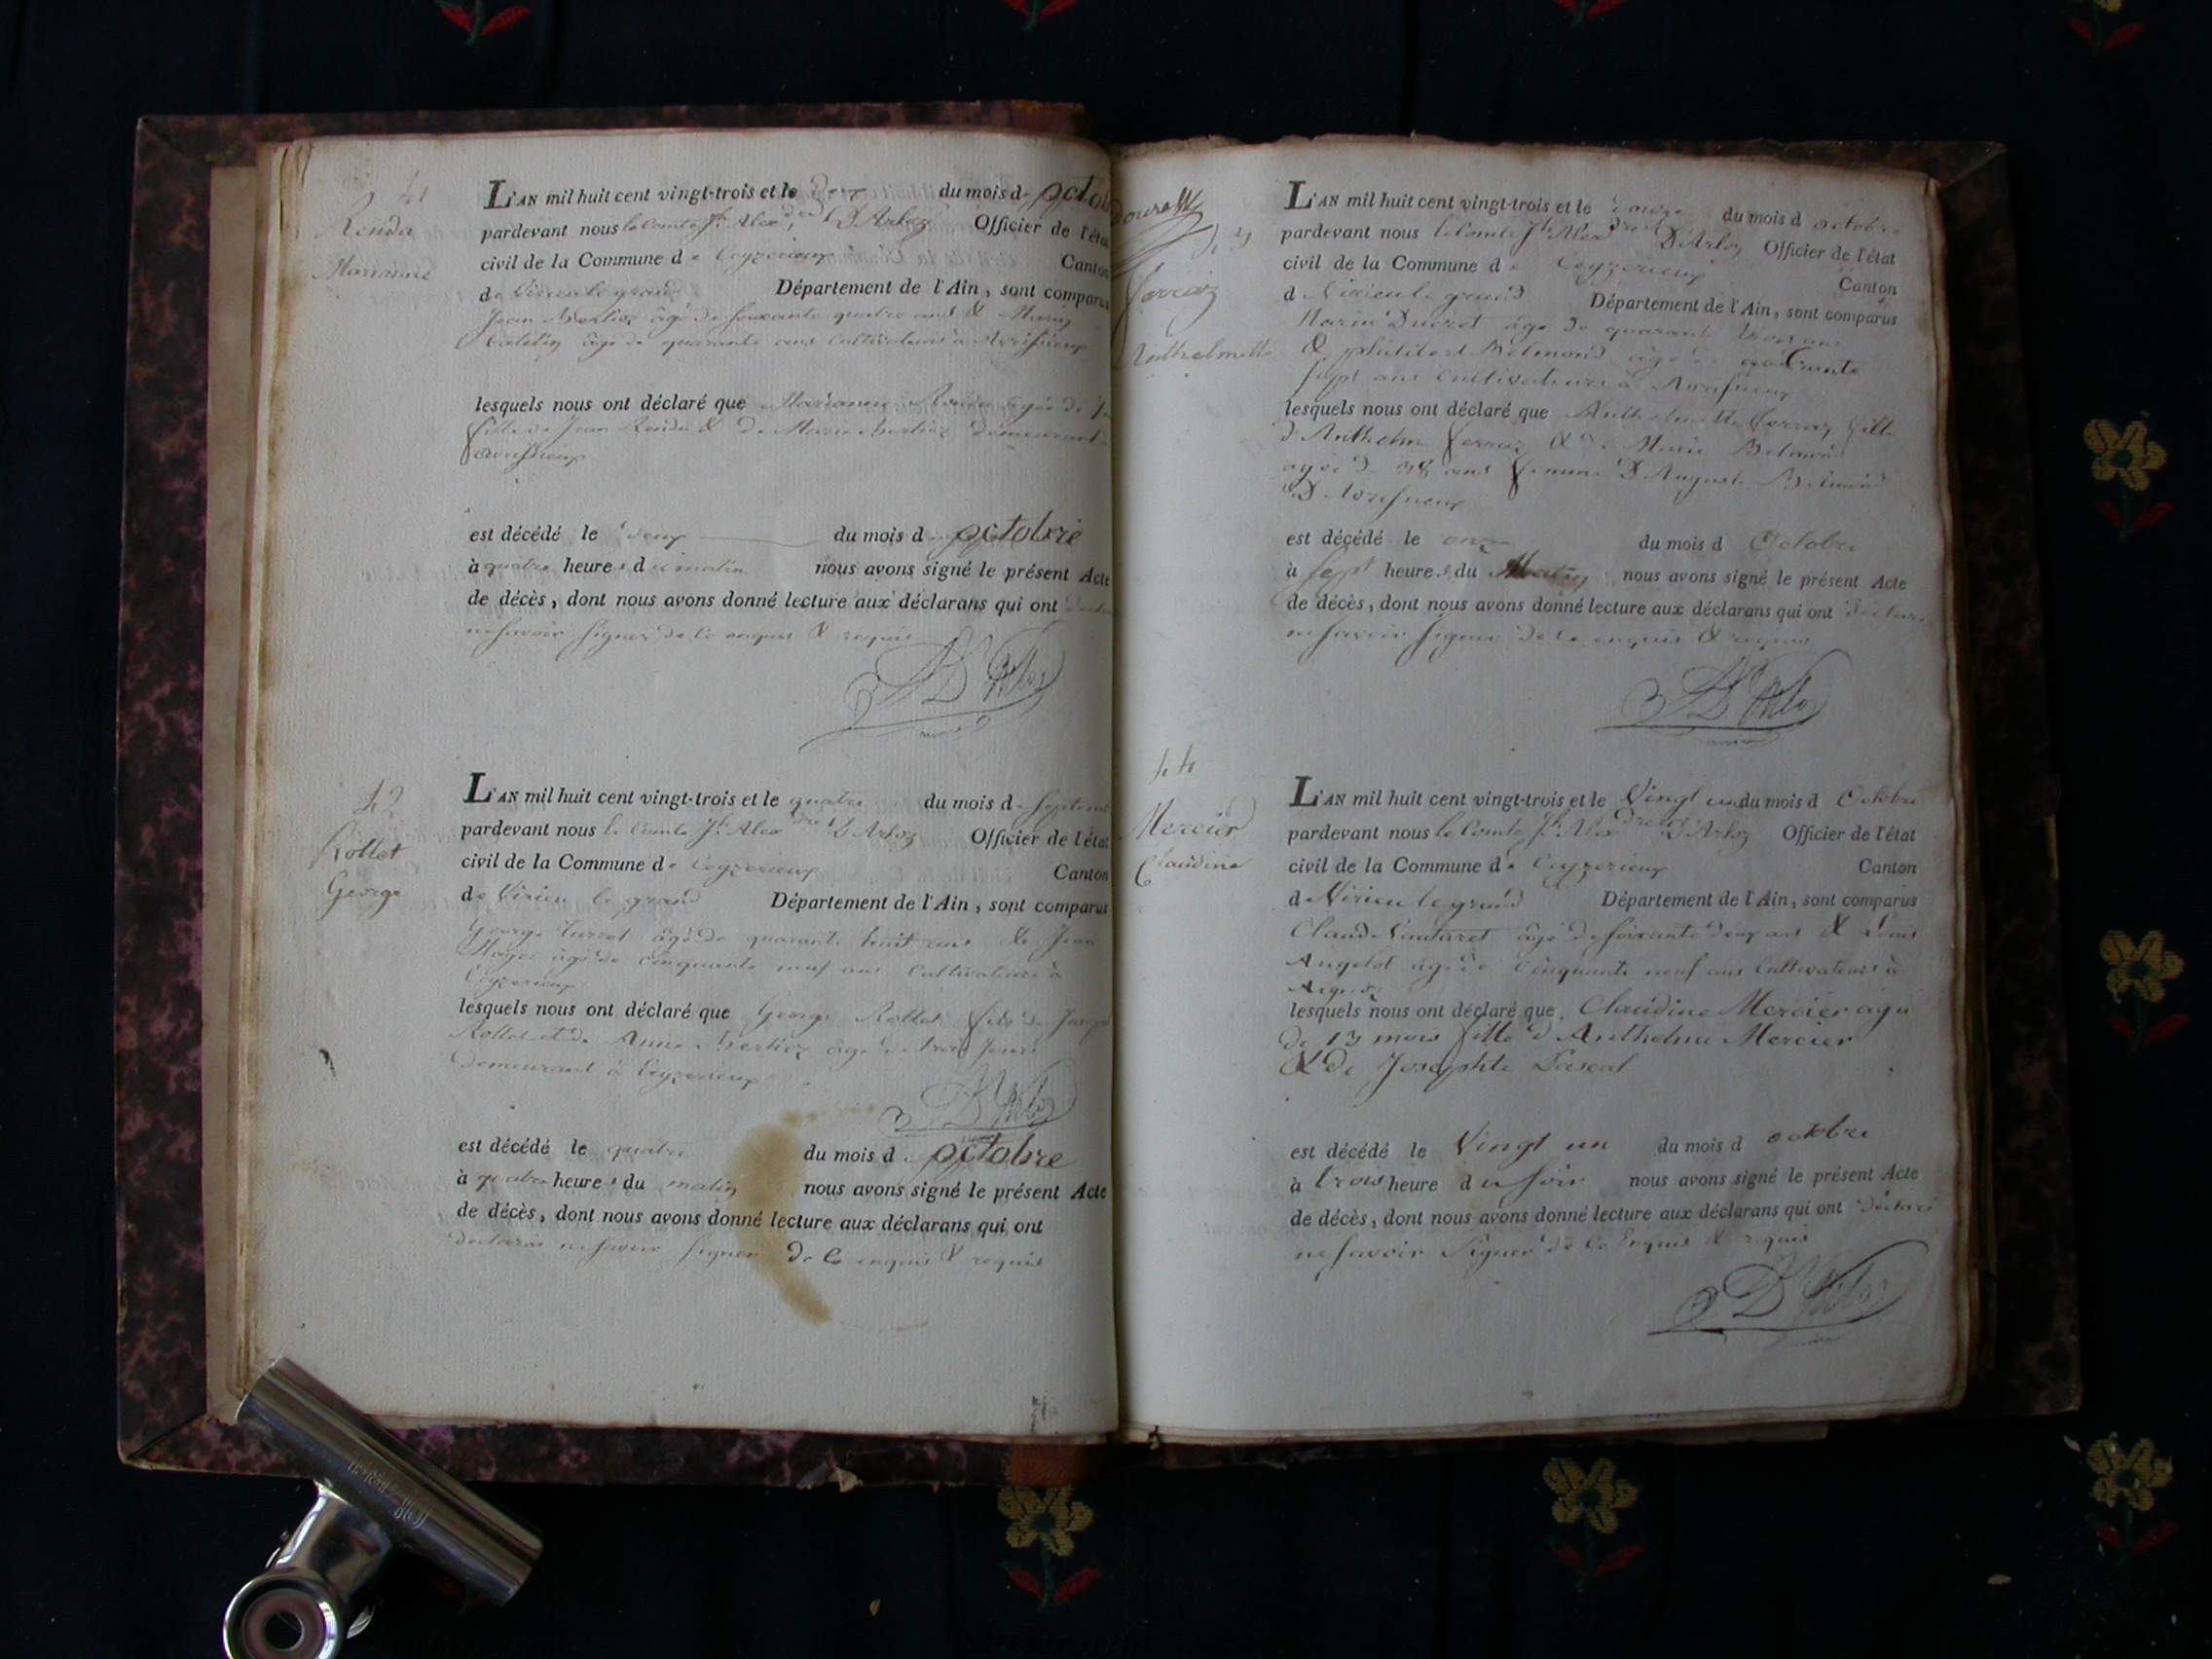 41
Rendu
Marianne
L'AN mil huit cent vingt-trois et le deux du mois d octob
pardevant nous le Comte Jh Alexdre D'Arloz Officier de l'état
civil de la Commune de Ceyzerieux Canton
de Virieu le grand Département de l'Ain, sont comparus
Jean Berlioz âgé de soixante quatre ans &
âgé de quarante ans cultivateurs à Avrissieux
lesquels nous ont déclaré que Marianne Rendu agée de
fille de Jean Rendu & de Marie Berlioz demeurant
avrissieux
est décédé le deux du mois d octobre
à quatre heures du matin nous avons signé le présent Acte
de décès, dont nous avons donné lecture aux déclarans qui ont
ne savoir signer de ce enquis & requis
D'Arloz
42
Rollet
George
L'AN mil huit cent vingt-trois et le quatre du mois de
pardevant nous le Comte Jh Alexdre D'Arloz Officier de l'état
civil de la Commune de Ceyzerieux Canton
de Virieu le grand Département de l'Ain, sont comparus
George âgé de quarante huit ans & Jean
âgé de cinquante neuf ans cultivateurs à
Ceyzerieux
lesquels nous ont déclaré que George Rollet fils de Joseph
Rollet et de Anne Berlioz âgé de trois jours
demeurant à Ceyzerieux
D'Arloz
est décédé le quatre du mois d octobre
à quatre heures du matin nous avons signé le présent Acte
de décès, dont nous avons donné lecture aux déclarans qui ont
déclarés ne savoir signer de ce enquis & requis
Ferraz
Anthelmette
L'AN mil huit cent vingt-trois et le onze du mois d octobre
pardevant nous le Comte Jh Alexdre D'Arloz Officier de l'état
civil de la Commune de Ceyzerieux Canton
d Virieu le grand Département de l'Ain, sont comparus
Marin Ducret âgé de quarante trois ans
& philibert Belmond âgé de quarante
sept ans cultivateurs à Avrissieux
lesquels nous ont déclaré que Anthelmette ferraz fille
d'Anthelme ferraz & de Marie Belmond
agée de 38 ans femme D'Auguste Belmond
D'Avrissieux
est décédé le onze du mois d Octobre
à sept heures du Matin nous avons signé le présent Acte
de décès, dont nous avons donné lecture aux déclarans qui ont déclaré
ne savoir signer de ce enquis & requis
D'Arloz
44
Mercier
Claudine
L'AN mil huit cent vingt-trois et le Vingt un du mois d Octobre
pardevant nous le Comte Jh Alexdre D'Arloz Officier de l'état
civil de la Commune de Ceyzerieux Canton
d Virieu le grand Département de l'Ain, sont comparus
Claude Vautaret âgé de soixante deux ans & Louis
Angelot âgé de cinquante neuf ans cultivateurs à
lesquels nous ont déclaré que Claudine Mercier agée
de 13 mois fille d'Anthelme Mercier
& de Josephte Pascal
est décédé le Vingt un du mois d octobre
à trois heure du soir nous avons signé le présent Acte
de décès, dont nous avons donné lecture aux déclarans qui ont déclaré
ne savoir signer de ce Enquis & requis
D'Arloz